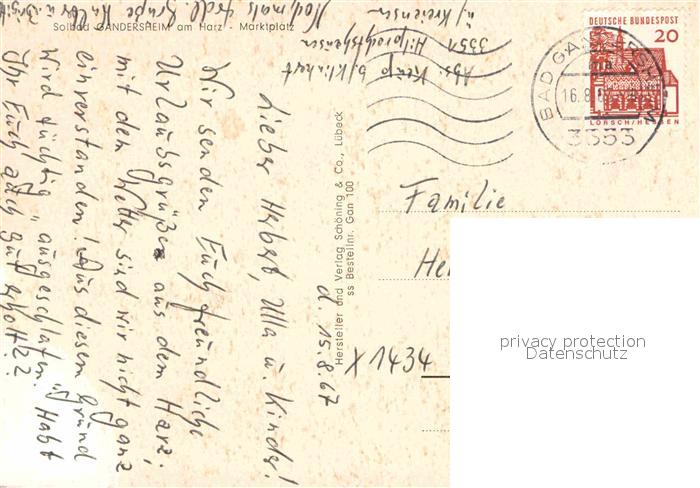 Solbad GANDERSHEIM am Harz - Marktplatz
d. 15.8.67
Lieber Herbert, Ulla u. Kinder!
Wir senden Euch freundliche
Urlaubsgrüße aus dem Harz.
mit dem Wetter sind wir nicht ganz
einverstanden! Aus diesem Grund
wird tüchtig "ausgeschlafen." Habt
Ihr Euch auch gut erholt??
Nochmals
Abs.
3351
ü/ Kreiensen
Hersteller und Verlag Schöning & Co., Lübeck
ss Bestellnr. Gan 100
DEUTSCHE BUNDESPOST
20
LORSCH/HESSEN
BAD GANDERSHEIM
16.8.
3353
Familie
He
X 1434
privacy protection
Datenschutz